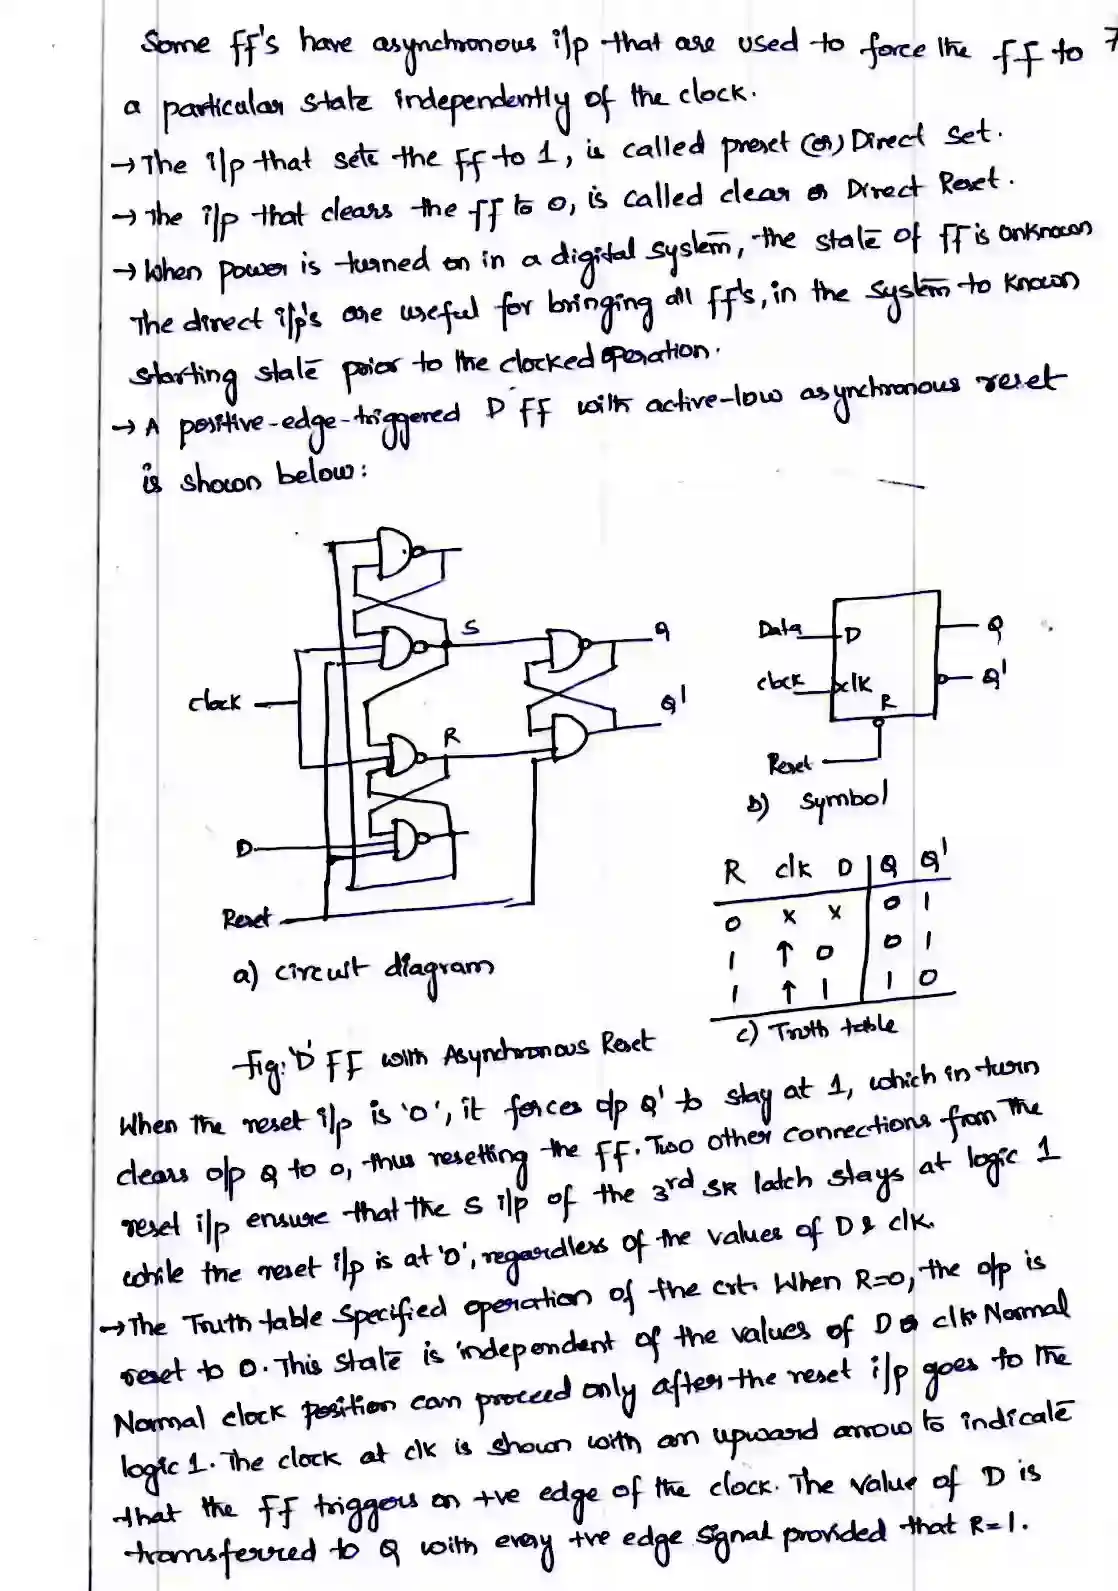 Some ff's have asynchronous i/p that are used to force the ff to 7
a particular state independently of the clock.
→ The i/p that sets the ff to 1, is called preset (or) Direct Set.
→ The i/p that clears the ff to 0, is called clear or Direct Reset.
→ When power is turned on in a digital system, the state of ff is unknown
The direct i/p's are useful for bringing all ff's, in the system to known
starting state prior to the clocked operation.
→ A positive-edge-triggered D FF with active-low asynchronous reset
is shown below:
S
Q
clock
R
Q'
D
Reset
a) circuit diagram
Data D Q
clock clk Q'
R
Reset
b) Symbol
R clk D Q Q'
0 x x 0 1
1 ↑ 0 0 1
1 ↑ 1 1 0
c) Truth table
Fig: 'D' FF with Asynchronous Reset
When the reset i/p is '0', it forces o/p Q' to stay at 1, which in turn
clears o/p Q to 0, thus resetting the FF. Two other connections from the
reset i/p ensure that the S i/p of the 3rd SR latch stays at logic 1
while the reset i/p is at '0', regardless of the values of D & clk.
→ The Truth table Specified operation of the crt. When R=0, the o/p is
reset to 0. This State is independent of the values of D clk Normal
Normal clock position can proceed only after the reset i/p goes to the
logic 1. The clock at clk is shown with an upward arrow to indicate
that the FF triggers on +ve edge of the clock. The value of D is
transferred to Q with every +ve edge signal provided that R=1.